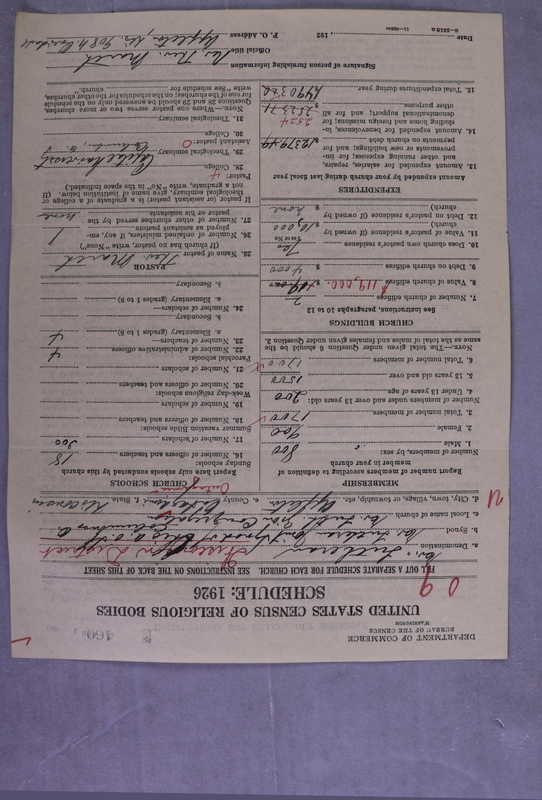 DEPARTMENT OF COMMERCE
BUREAU OF THE CENSUS
WASHINGTON
460
UNITED STATES CENSUS OF RELIGIOUS BODIES
SCHEDULE: 1926
FILL OUT A SEPARATE SCHEDULE FOR EACH CHURCH. SEE INSTRUCTIONS ON THE BACK OF THIS SHEET
a. Denomination Ev. Lutheran
b. Synod Ev. Lutheran Joint Synod of Ohio a. o. St. District
c. Local name of church Ev. Luth. Zion Congregation
d. City, town, village, or township, etc. Appleton e. County Outagamie f. State Wisconsin
MEMBERSHIP
Report number of members according to definition of member in your church
Number of members, by sex:
1. Male 800
2. Female 900
3. Total number of members 1700
Number of members under and over 13 years old:
4. Under 13 years of age 200
5. 13 years old and over 1500
6. Total number of members 1700
NOTE.—The total given under Question 6 should be the same as the total of males and females given under Question 3.
CHURCH BUILDINGS
See instructions, paragraphs 10 to 12
7. Number of church edifices 2
8. Value of church edifices $ 119,000
9. Debt on church edifices $ 4000
10. Does own pastor's residence Yes
Yes or No
11. Value of pastor's residence (if owned by church) $ 10,000
12. Debt on pastor's residence (if owned by church) $ none
EXPENDITURES
Amount expended by your church during last fiscal year
13. Amount expended for salaries, repairs, and other running expenses; for improvements or new buildings; and for payments on church debt $ 12379.49
14. Amount expended for benevolences, including home and foreign missions; for denominational support; and for all other purposes $ 2523.71
2524
15. Total expenditures during year $ 14903.20
CHURCH SCHOOLS
Report here only schools conducted by this church
Sunday schools:
16. Number of officers and teachers 18
17. Number of scholars 300
Summer vacation Bible schools:
18. Number of officers and teachers
19. Number of scholars
Week-day religious schools:
20. Number of officers and teachers
21. Number of scholars
Parochial schools:
22. Number of administrative officers 4
23. Number of teachers—
a. Elementary (grades 1 to 8) 4
b. Secondary
24. Number of scholars—
a. Elementary (grades 1 to 8)
b. Secondary
PASTOR
25. Name of pastor Theo. Marth
(If church has no pastor, write "None")
26. Number of ordained ministers, if any, employed as assistant pastors 1
27. Number of other churches served by the pastor or his assistants none
If pastor (or assistant pastor) is a graduate of college or theological seminary, give name of institution below. (If not a graduate, write "No" in the space indicated.)
Pastor:
28. College Capital University
29. Theological seminary Columbus O.
Assistant pastor:
30. College
31. Theological seminary
NOTE.—Where one pastor serves two or more churches, Questions 28 and 29 should be answered only on the schedule for one of the churches; on the schedules for the other churches, write "See schedule for church."
Signature of person furnishing information Rev. Theo. Marth
Official title
P. O. Address Appleton, Wis.
Date 192